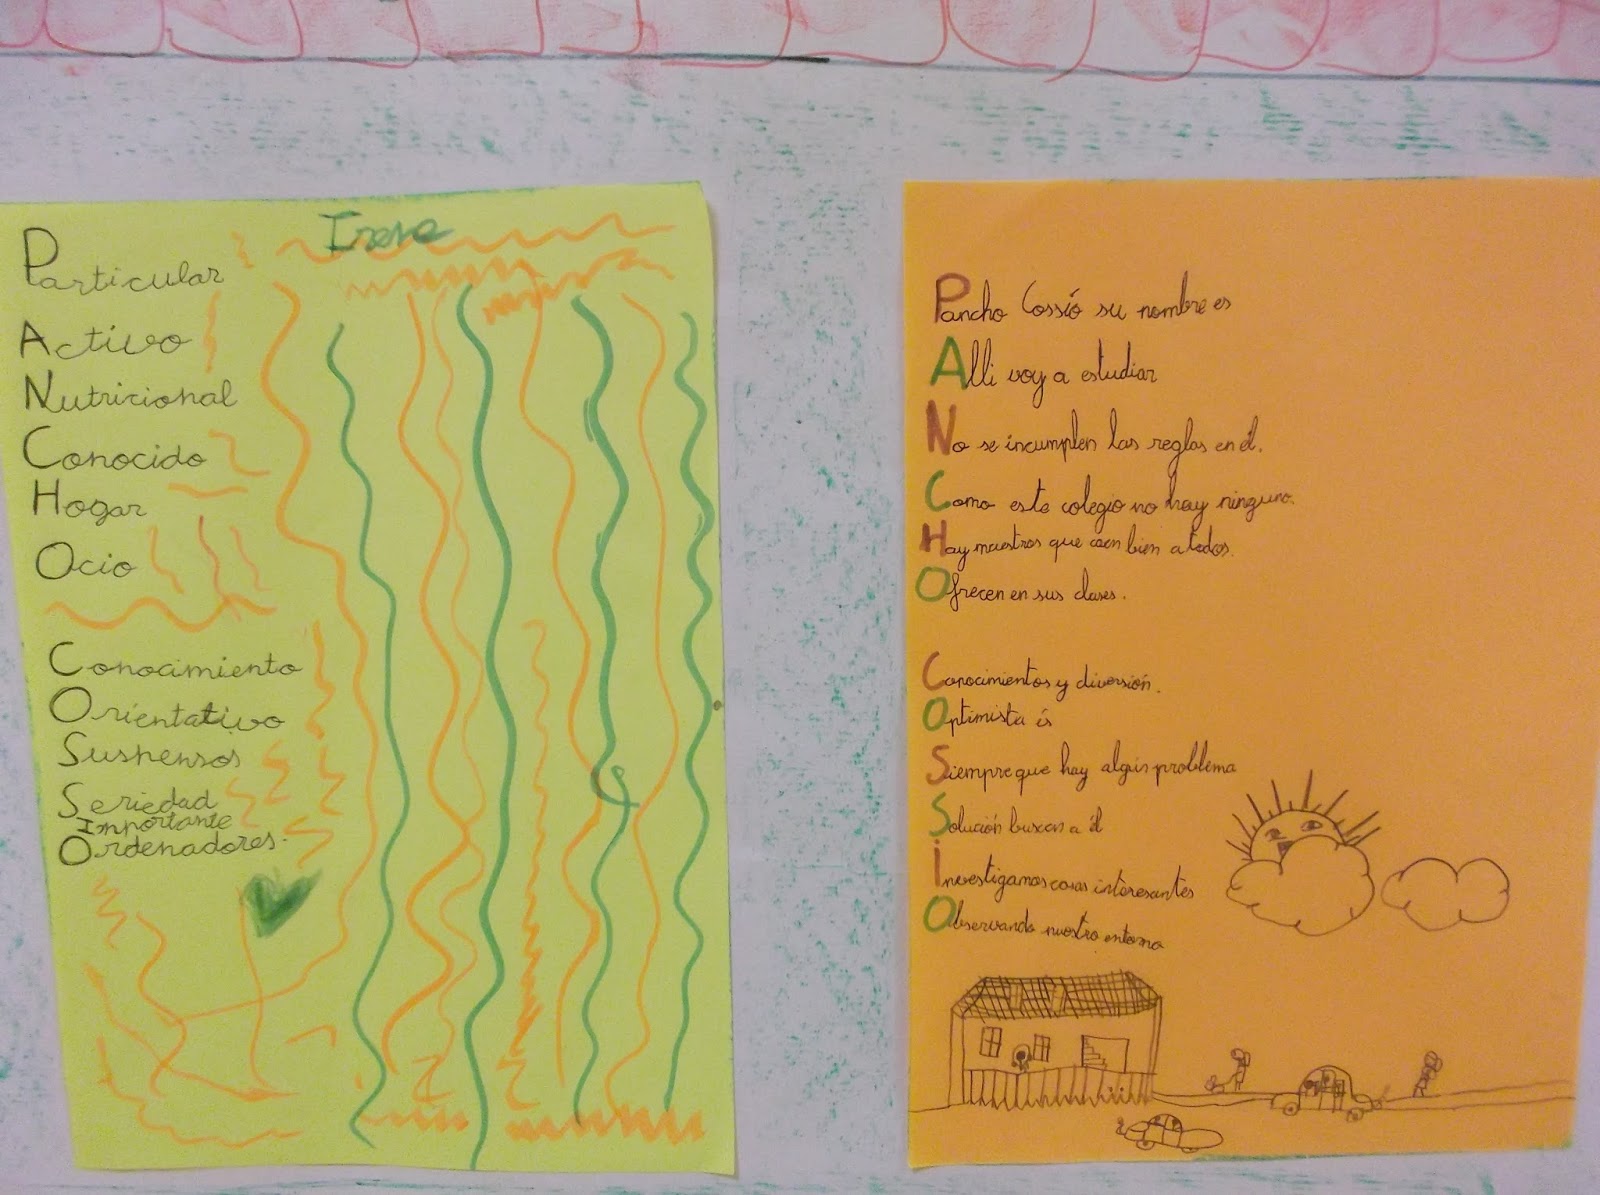 Irene
Particular
Activo
Nutricional
Conocido
Hogar
Ocio
Conocimiento
Orientativo
Suspensos
Seriedad
Importante
Ordenadores.
Pancho Cossió su nombre es
Alli voy a estudiar
No se incumplen las reglas en él.
Como este colegio no hay ninguno.
Hay maestros que caen bien a todos.
Ofrecen en sus clases.
Conocimientos y diversión.
Optimista és
Siempre que hay algún problema
Solución buscan a él
Investigamos cosas interesantes
Observando nuestro entorno